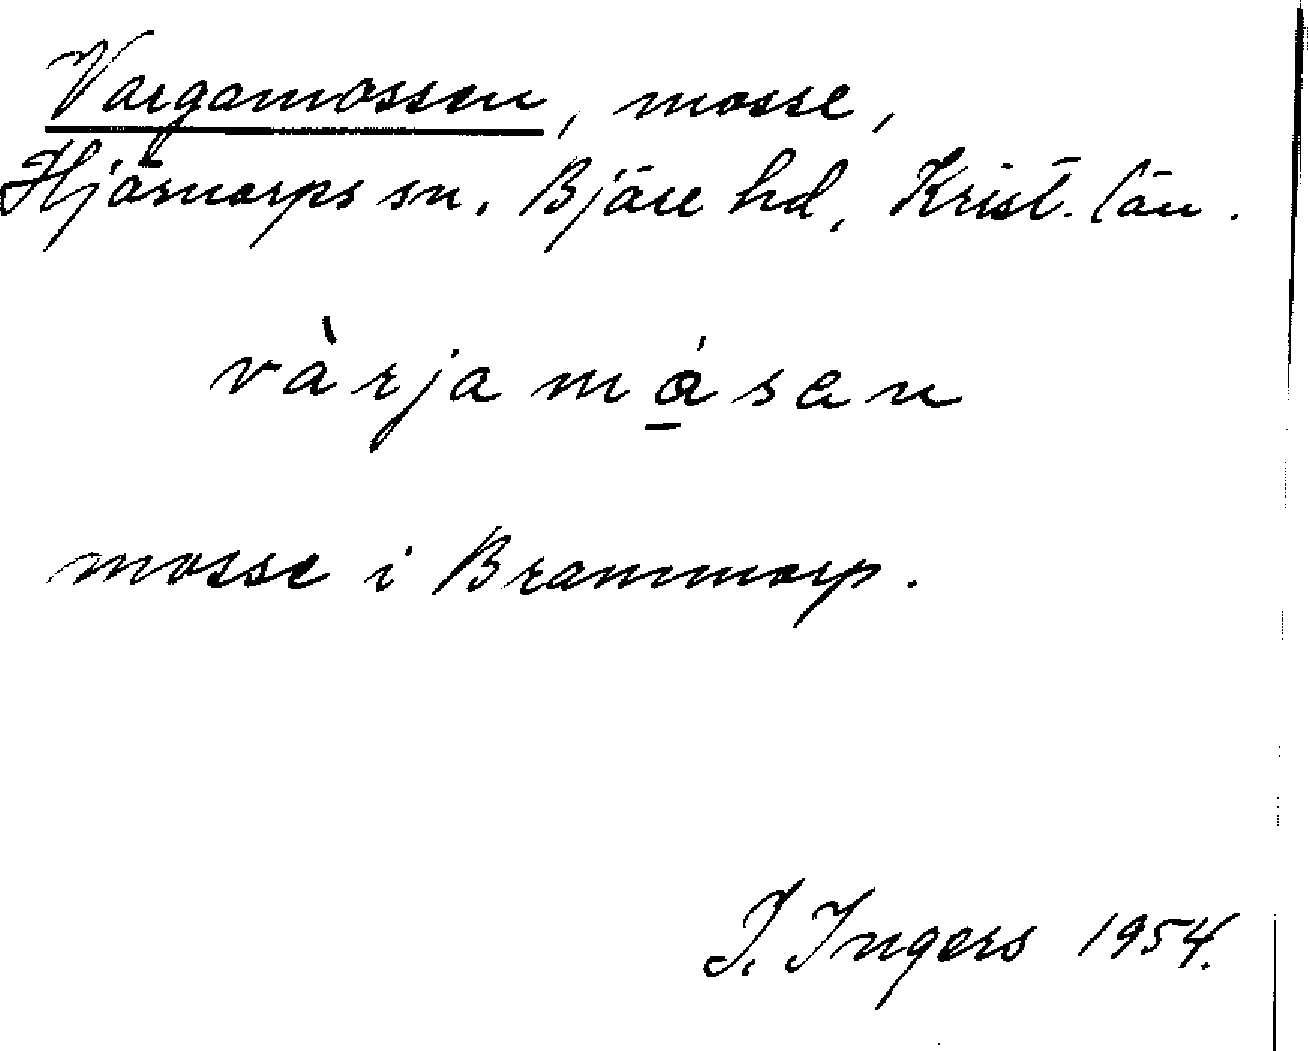 Vargamossen, mosse,
Hjärnarps sn. Bjäre hd, Krist. län.
vàrjamo̲´san
mosse i Brammarp.
I. Ingers 1954.